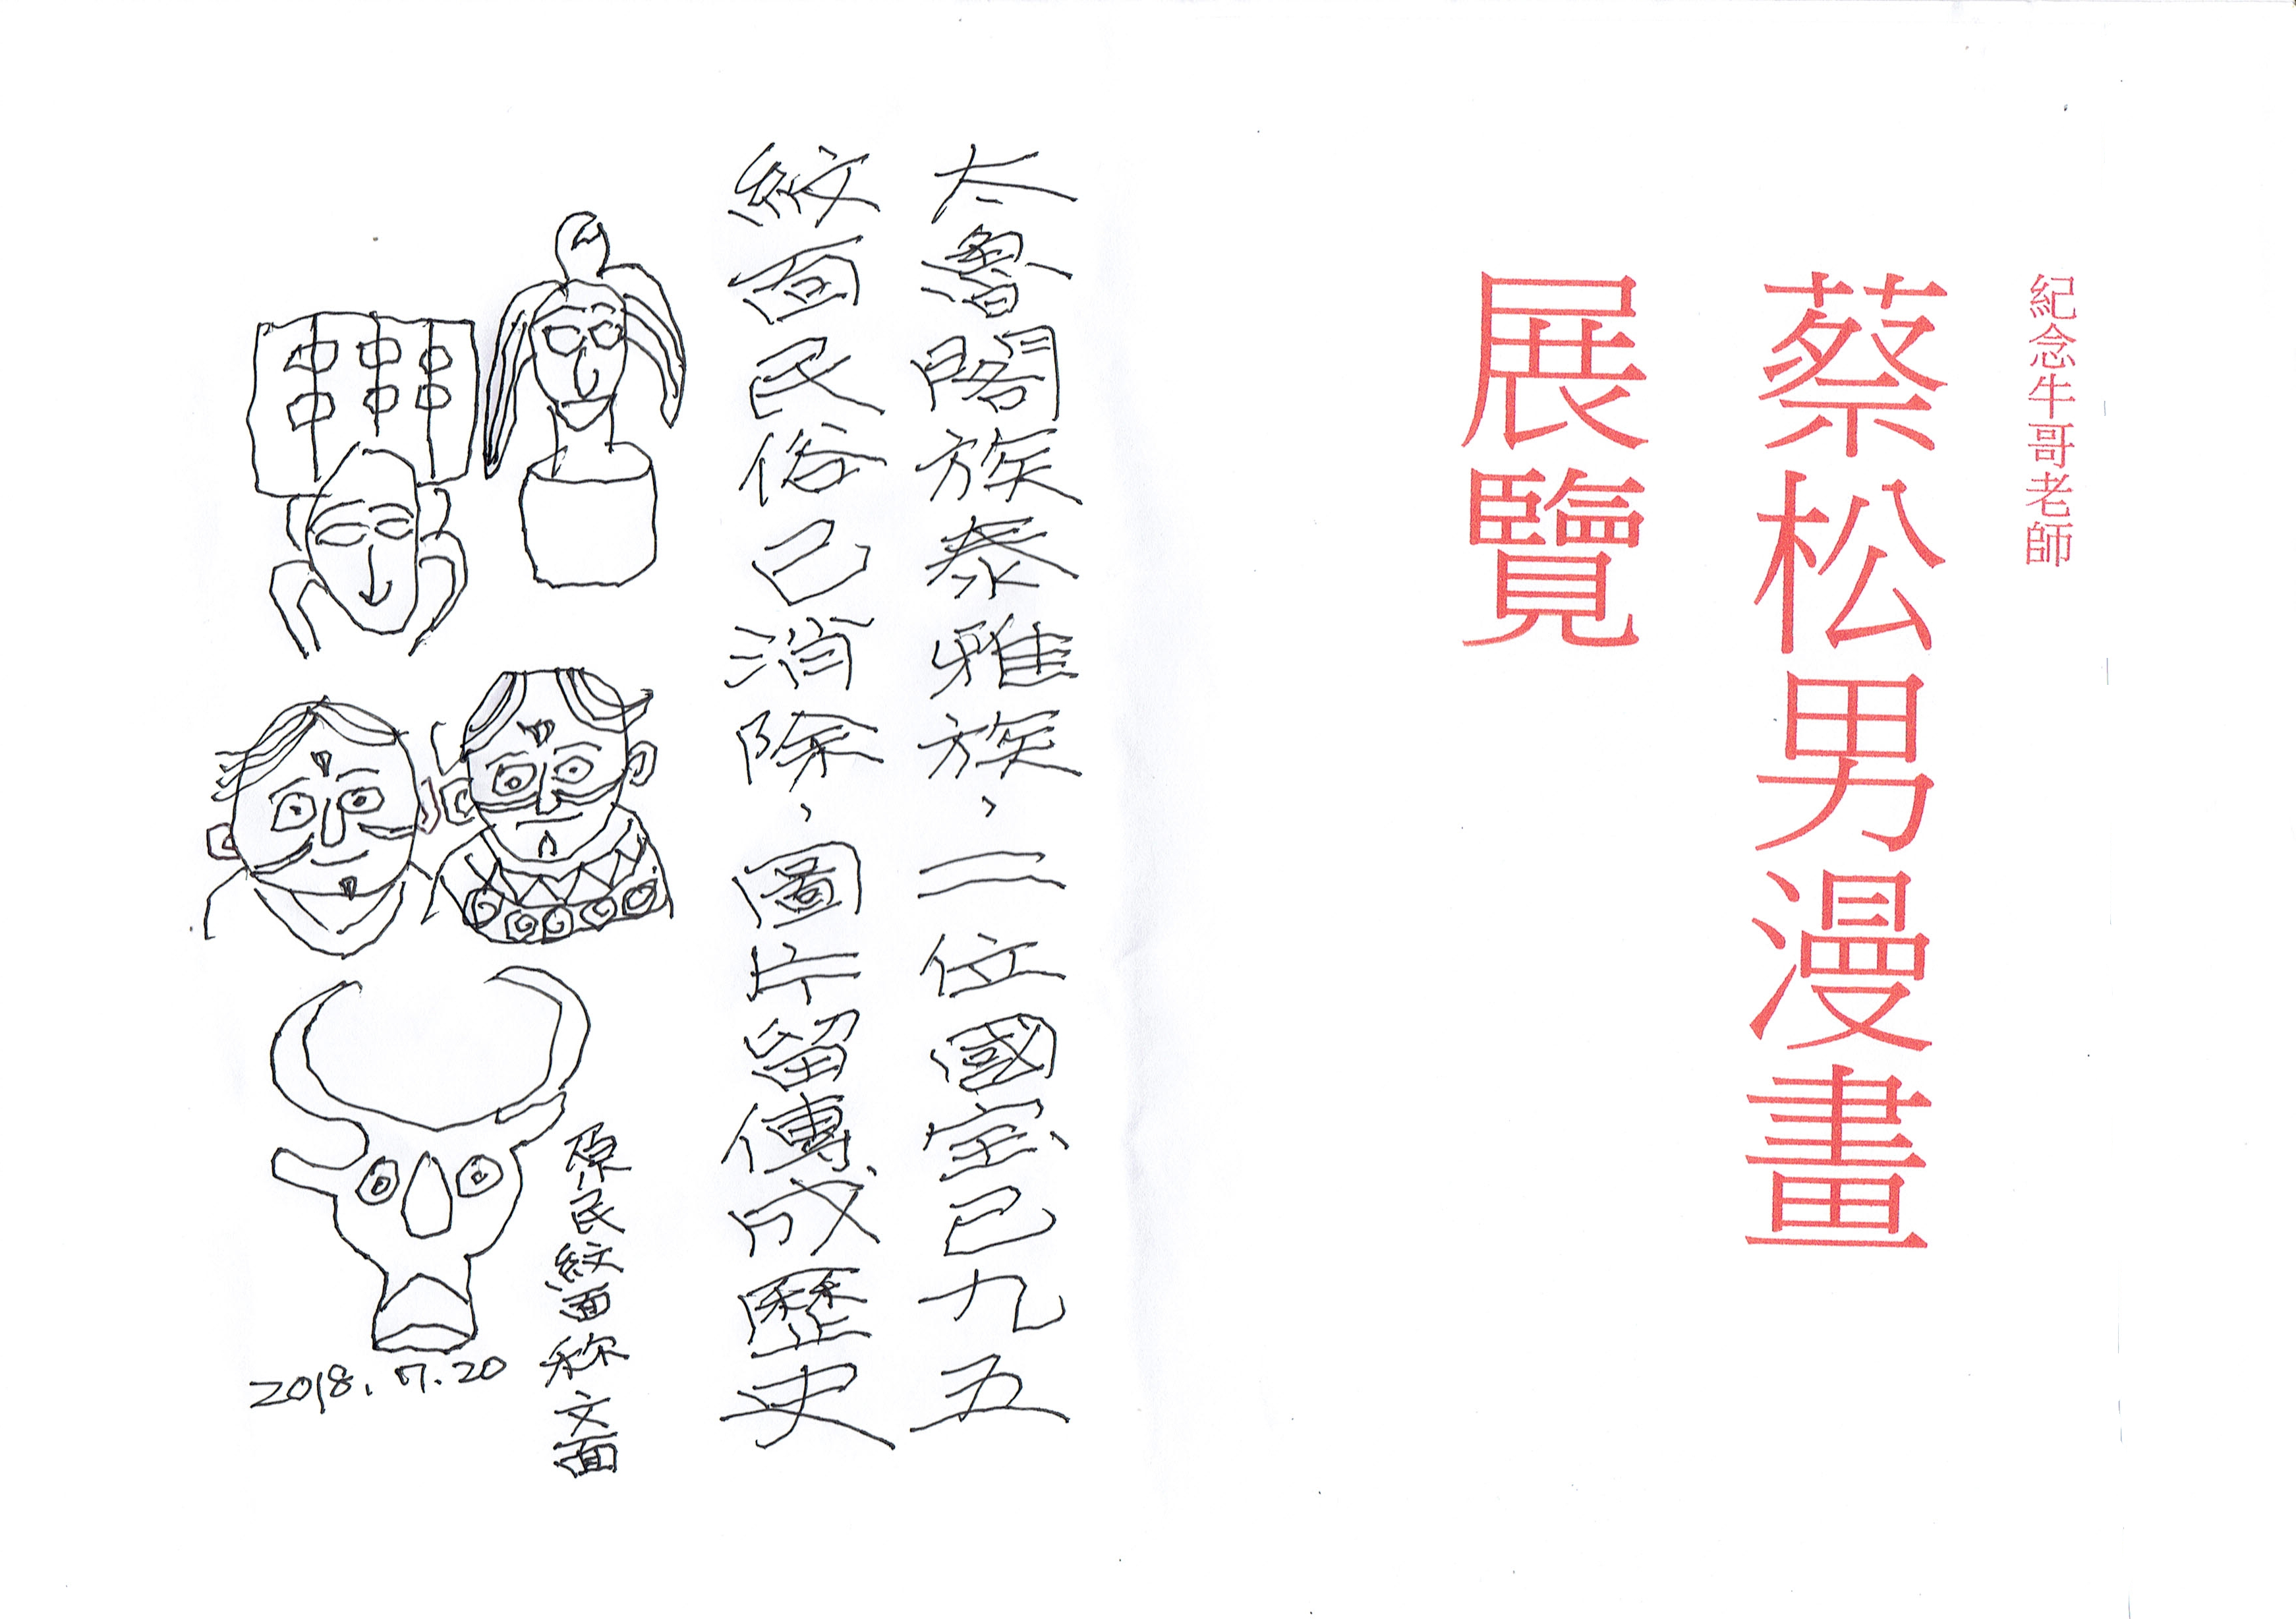 紀念牛哥老師
蔡松男漫畫
展覽
太魯閣族泰雅族，二位國宝已九五
紋面民俗已消除，圖片留傳成歷史
原民紋面称文面
2018.7.20